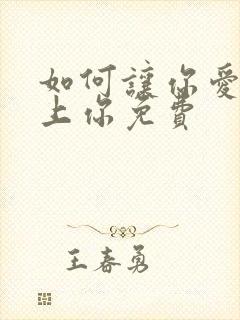 如何讓你愛
上你免費
王春勇